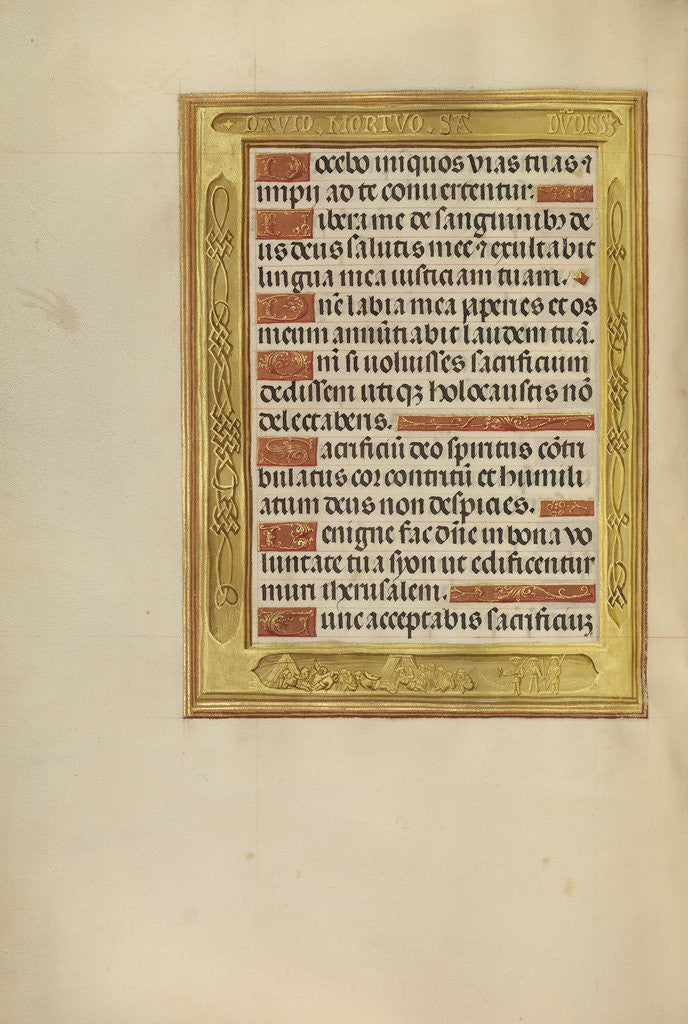 DAVID . MORTVO . SA DVDISS
Docebo iniquos vias tuas ⁊
impij ad te conuertentur.
Libera me de sanguinibꝫ de
us deus salutis mee ⁊ exultabit
lingua mea iusticiam tuam.
Dn̄e labia mea japeries et os
meum annūtiabit laudem tuā.
Qm̄ si uoluisses sacrificium
dedissem utiqꝫ holocaustis nō
delectaberis.
Sacrificiū deo spiritus cōtri
bulatus cor contritū et humili
atum deus non despicies.
Benigne fac dn̄e in bona vo
luntate tua syon ut edificentur
muri iherusalem.
Tunc acceptabis sacrificiuꝫ